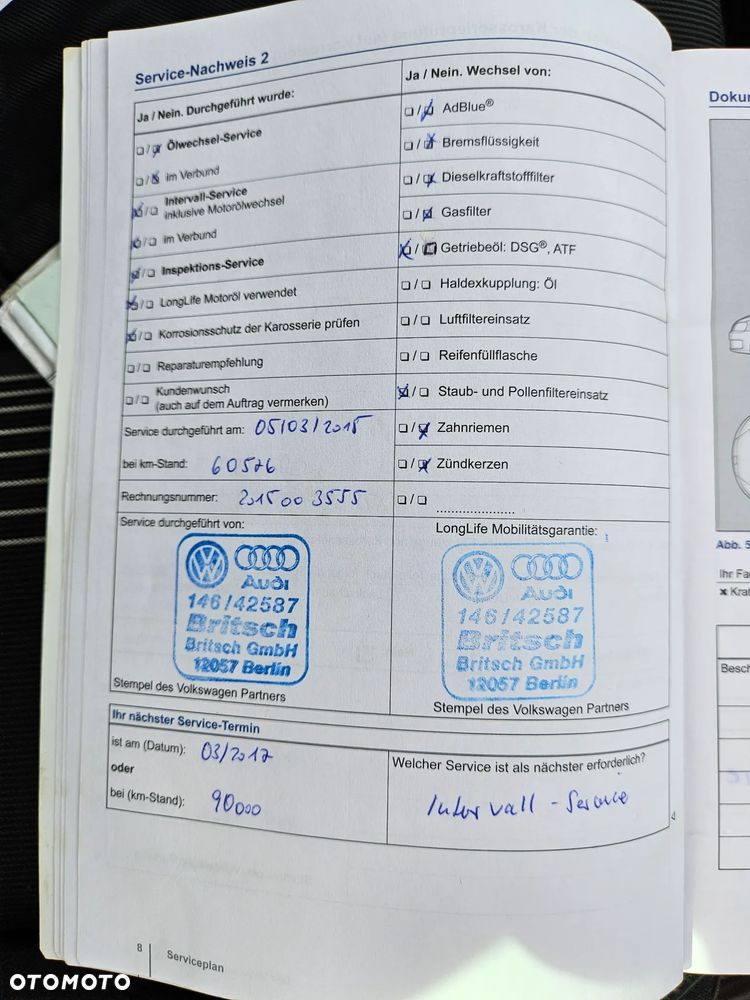 Service-Nachweis 2
Ja / Nein. Durchgeführt wurde:
☐/☒ Ölwechsel-Service
☐/☒ im Verbund
☒/☐ Intervall-Service
inklusive Motorölwechsel
☒/☐ im Verbund
☒/☐ Inspektions-Service
☒/☐ LongLife Motoröl verwendet
☒/☐ Korrosionsschutz der Karosserie prüfen
☐/☐ Reparaturempfehlung
☐/☐ Kundenwunsch
(auch auf dem Auftrag vermerken)
Service durchgeführt am: 05/03/2015
bei km-Stand: 60576
Rechnungsnummer: 2015003555
Ja / Nein. Wechsel von:
☐/☒ AdBlue®
☐/☒ Bremsflüssigkeit
☐/☒ Dieselkraftstofffilter
☐/☒ Gasfilter
☒/☐ Getriebeöl: DSG®, ATF
☐/☐ Haldexkupplung: Öl
☐/☐ Luftfiltereinsatz
☐/☐ Reifenfüllflasche
☒/☐ Staub- und Pollenfiltereinsatz
☐/☒ Zahnriemen
☐/☒ Zündkerzen
☐/☐ .....................
Service durchgeführt von:
Audi
146/42587
Britsch
Britsch GmbH
12057 Berlin
Stempel des Volkswagen Partners
LongLife Mobilitätsgarantie:
Audi
146/42587
Britsch
Britsch GmbH
12057 Berlin
Stempel des Volkswagen Partners
Ihr nächster Service-Termin
ist am (Datum): 03/2017
oder
bei (km-Stand): 90000
Welcher Service ist als nächster erforderlich?
Intervall - Service
8
Serviceplan
Abb. 5
Ihr Fa
Besch
OTOMOTO